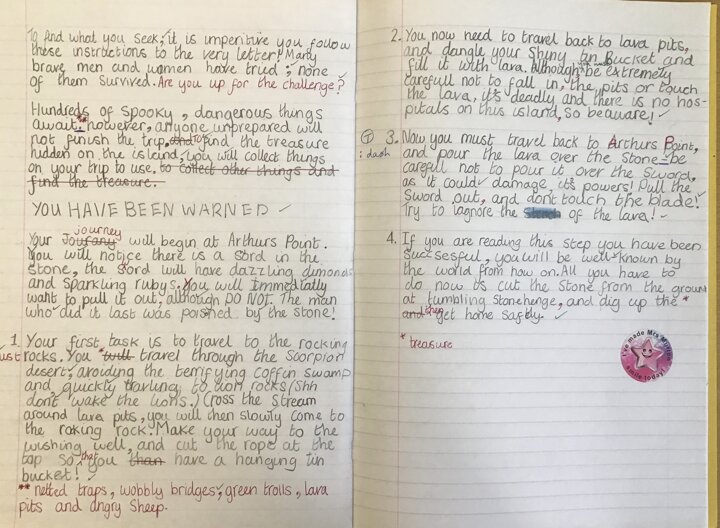 To find what you seek, it is imperitive you follow
these instructions to the very letter! Many
brave men and women have tried ; none
of them survived. Are you up for the challenge?
Hundreds of spooky, dangerous things
await** however, anyone unprepared will
not finish the trip, and to find the treasure
hidden on the island, you will collect things
on your trip to use, to collect other things and
find the treasure.
YOU HAVE BEEN WARNED
journey
Your Jourany will begin at Arthurs Point.
You will notice there is a sord in the
stone, the sord will have dazzling dimonds
and sparkling rubys. You will immediatly
want to pull it out, although DO NOT. The man
who did it last was poisned by the stone!
1. Your first task is to travel to the rocking
must rocks. You will travel through the Scorpion
desert, avoiding the terrifying coffin swamp
and quickly travling to lion rocks (Shh
don't wake the lions.) Cross the stream
around lava pits, you will then slowly come to
the roking rock. Make your way to the
wishing well, and cut the rope at the
top so that you than have a hanging tin
bucket!
** netted traps, wobbly bridges, green trolls, lava
pits and angry sheep.
2. You now need to travel back to lava pits,
and dangle your shiny an Bucket and
fill it with lava. Although, be extremely
carefull not to fall in, the pits or touch
the lava, it's deadly and there is no hos-
pitals on this island, so beaware!
T 3. Now you must travel back to Arthurs Point,
: dash and pour the lava over the stone - be
carefull not to pour it over the sword,
as it could damage, it's powers! Pull the
sword out, and don't touch the blade!
Try to ignore the of the lava!
4. If you are reading this step you have been
succsesful, you will be well known by
the world from now on. All you have to
do now is cut the stone from the ground
at tumbling Stonehenge, and dig up the *
and then get home safley.
* treasure
I've made Mrs
smile today!